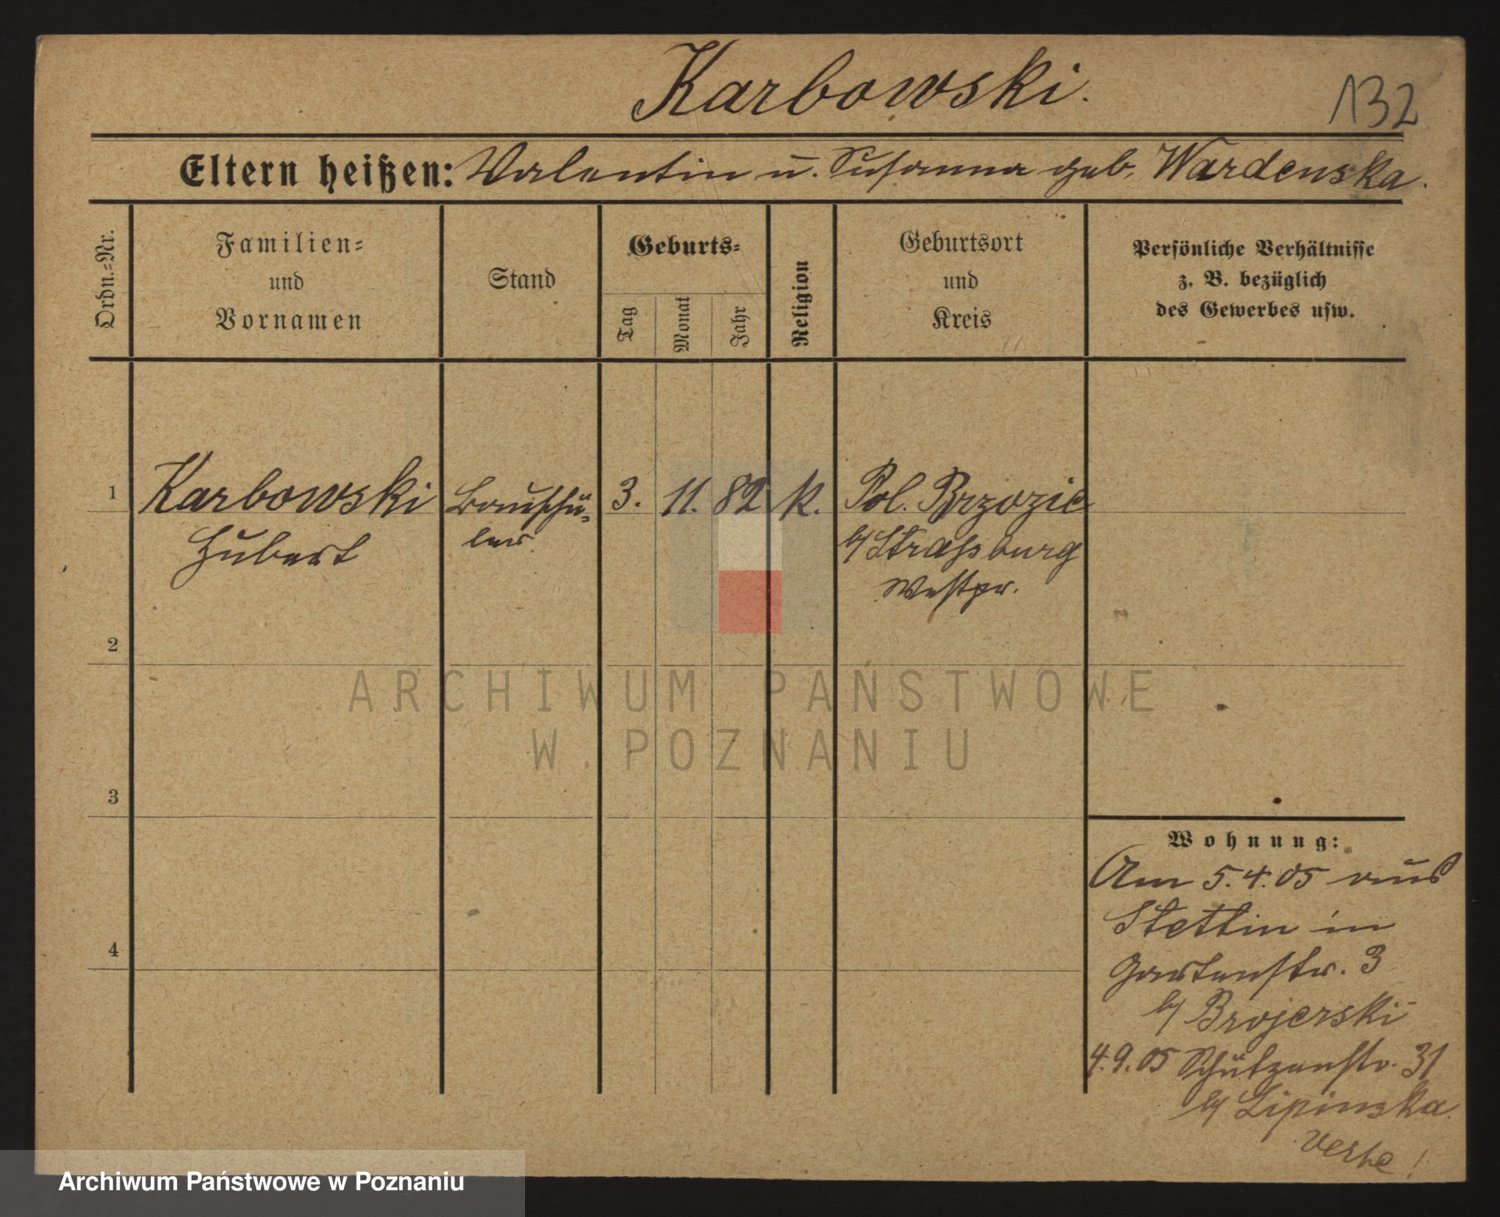 Karbowski.
132
Eltern heißen: Valentin u. Susanna geb. Wardenska.
Ordn.-Nr.
Familien-
und
Vornamen
Stand
Geburts-
Tag
Monat
Jahr
Religion
Geburtsort
und
Kreis
Persönliche Verhältnisse
z. B. bezüglich
des Gewerbes usw.
1 Karbowski Bauschü- 3. 11. 82 k. Pol. Brzozie
Hubert ler b/ Straßburg
Westpr.
2
3
4
Wohnung:
Am 5.4.05 aus
Stettin in
Gartenstr. 3
b/ Brojerski
4.9.05 Schützenstr. 31
b/ Lipinska.
ARCHIWUM PAŃSTWOWE
W POZNANIU
Archiwum Państwowe w Poznaniu